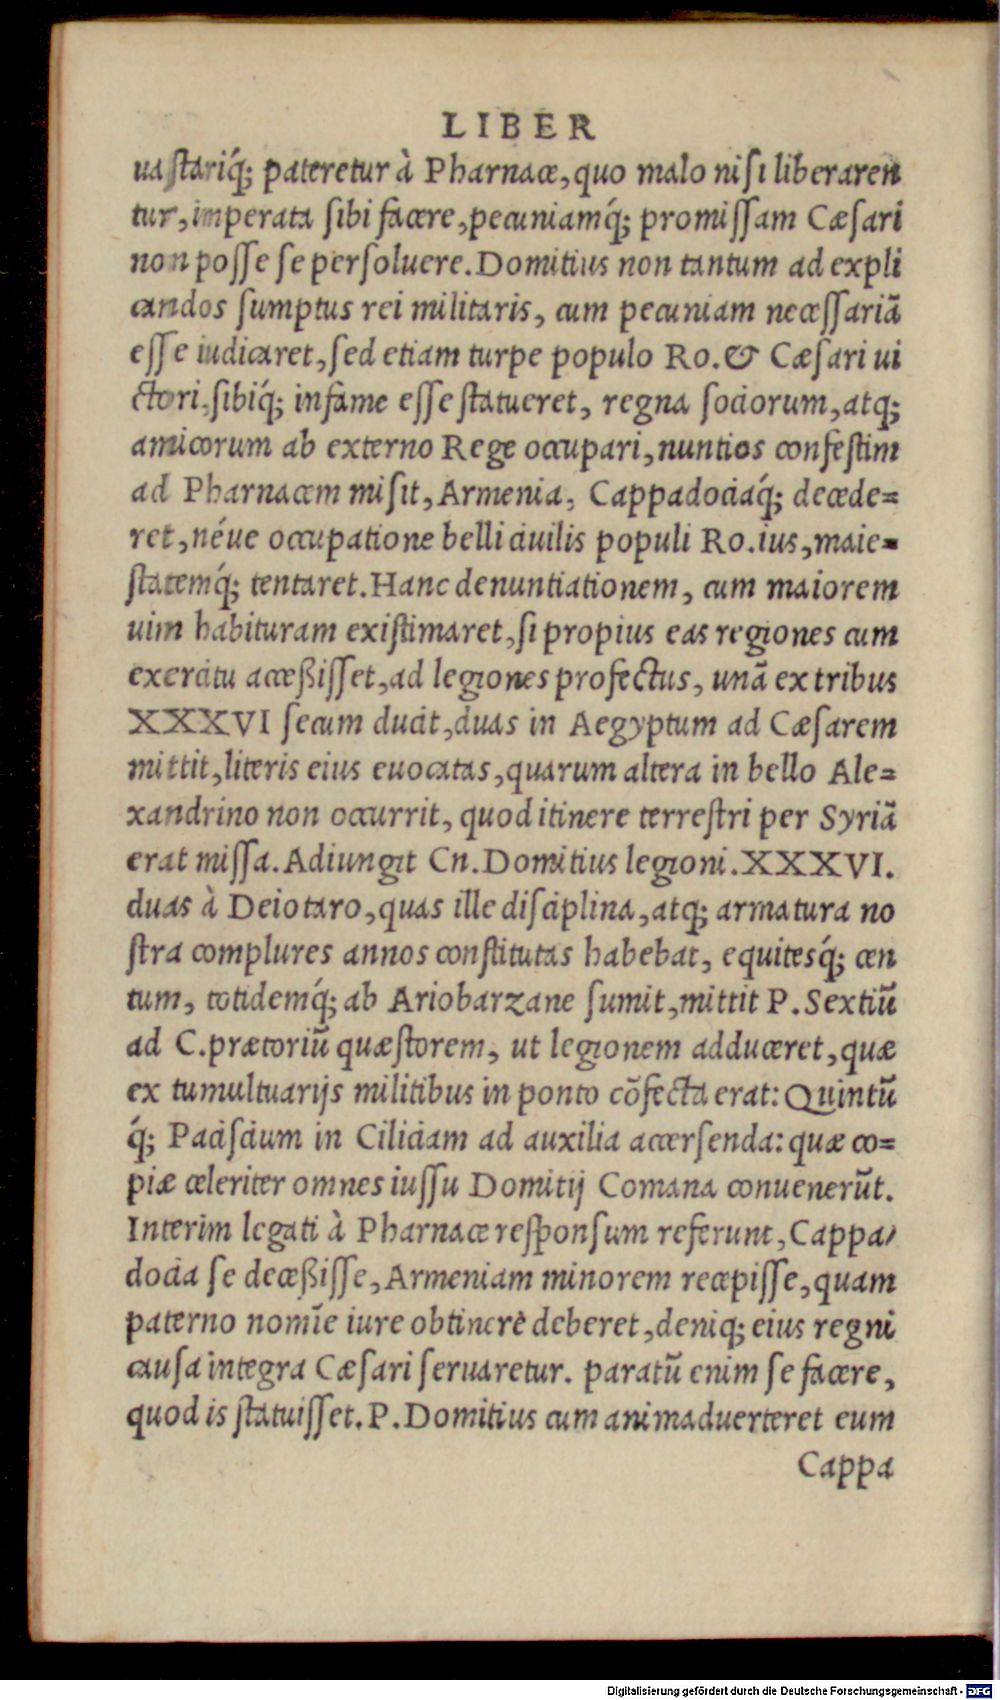 LIBER
uaſtariq́; pateretur à Pharnace, quo malo niſi liberaren
tur, imperata ſibi facere, pecuniamq́; promiſſam Cæſari
non poſſe ſe perſoluere. Domitius non tantum ad expli
candos ſumptus rei militaris, cum pecuniam neceſſariã
eſſe iudicaret, ſed etiam turpe populo Ro. & Cæſari ui
ctori, ſibiq́; infame eſſe ſtatueret, regna ſociorum, atq;
amicorum ab externo Rege occupari, nuntios confeſtim
ad Pharnacem miſit, Armenia, Cappadociaq́; decede=
ret, néue occupatione belli ciuilis populi Ro. ius, maie=
ſtatemq́; tentaret. Hanc denuntiationem, cum maiorem
uim habituram exiſtimaret, ſi propius eas regiones cum
exercitu acceßiſſet, ad legiones profectus, unã ex tribus
XXXVI ſecum ducit, duas in Aegyptum ad Cæſarem
mittit, literis eius euocatas, quarum altera in bello Ale=
xandrino non occurrit, quod itinere terreſtri per Syriã
erat miſſa. Adiungit Cn. Domitius legioni. XXXVI.
duas à Deiotaro, quas ille diſciplina, atq; armatura no
ſtra complures annos conſtitutas habebat, equitesq́; cen
tum, totidemq́; ab Ariobarzane ſumit, mittit P. Sextiũ
ad C. prætoriũ quæſtorem, ut legionem adduceret, quæ
ex tumultuarijs militibus in ponto cõfecta erat: Quintũ
q́; Paciſcium in Ciliciam ad auxilia accerſenda: quæ co=
piæ celeriter omnes iuſſu Domitij Comana conuenerũt.
Interim legati à Pharnace reſponſum referunt, Cappa/
docia ſe deceßiſſe, Armeniam minorem recepiſſe, quam
paterno nomĩe iure obtinerè deberet, deniq; eius regni
cauſa integra Cæſari ſeruaretur. paratũ enim ſe facere,
quod is ſtatuiſſet. P. Domitius cum animaduerteret eum
Cappa
Digitalisierung gefördert durch die Deutsche Forschungsgemeinschaft - DFG